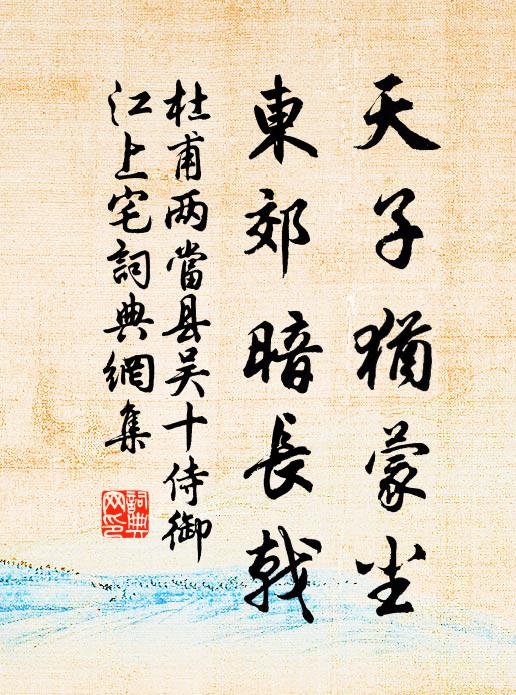 天子猶蒙尘
東郊暗長戟
杜甫两當县吴十侍御
江上宅詞典網集
詞典网印